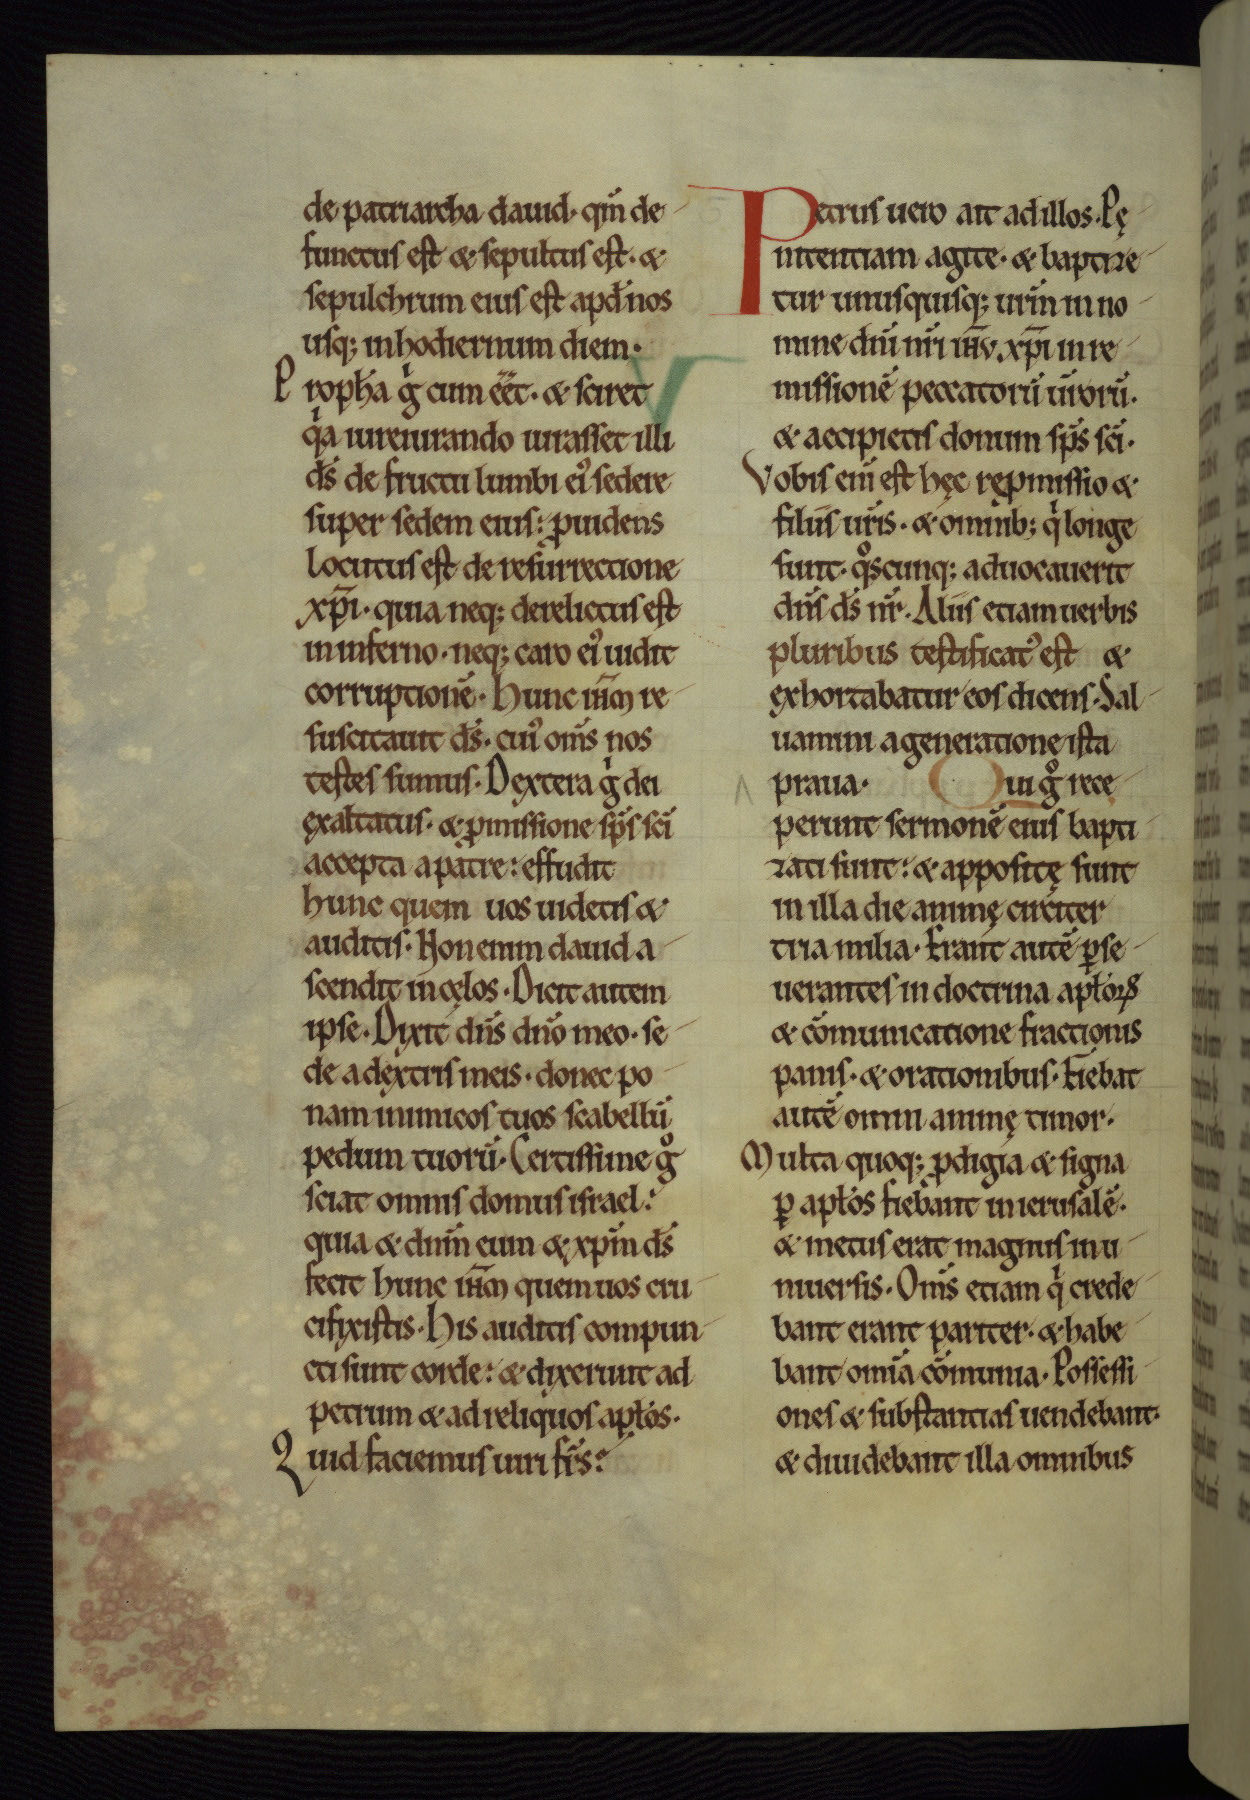 de patriarcha dauid· qm̄ de
functus est & sepultus est· &
sepulchrum eius est apd̄ nos
usq; in hodiernum diem·
Propħa g̍ cum eēt· & sciret V
q̍a iureiurando iurasset illi
d̄s de fructu lumbi ei᾽ sedere
super sedem eius: p̱uidens
locutus est de resurrectione
xp̄i· quia neq; derelictus est
in inferno· neq; caro ei᾽ uidit
corruptionē· Hunc ih̄m re
suscitauit d̄s· cui᾽ om̄s nos
testes sumus· Dextera g̍ dei
exaltatus· & p̱missione sp̄s sc̄i
accepta a patre: effudit
hunc quem uos uidetis &
auditis· Non enim dauid a
scendit in cęlos· Dicit autem
ipse· Dixit dn̄s dn̄o meo· se
de a dextris meis· donec po
nam inimicos tuos scabellū
pedum tuorū· Certissime gͦ
sciat omnis domus israel:
quia & dn̄m eum & xp̄m d̄s
fecit hunc ih̄m quem uos cru
cifixistis· His auditis compun
cti sunt corde: & dixerunt ad
petrum & ad reliquos apłos·
Quid faciemus uiri fr̄s:
Petrus uero ait ad illos· Pę
nitentiam agite· & baptize
tur unusquisq; ur̄m in no
mine dn̄i nr̄i ih̄v xp̄i in re
missionē peccatorū ur̄orū·
& accipietis donum sp̄s sc̄i·
Vobis eni̅ est hęc rep̱missio &
filiis ur̄is· & omnib; q̍ longe
sunt· qͦscunq; aduocauerit
dn̄s d̄s nr̄· Aliis etiam uerbis
pluribus testificat᾽ est &
exhortabatur eos dicens· Sal
uamini a generatione ista
praua· Qui gͦ rece
perunt sermonē eius bapti
zati sunt: & appositę sunt
in illa die animę circiter
tria milia· Erant autē p̱se
uerantes in doctrina apłoꝝ
& cōmunicatione fractionis
panis· & orationibus· Fiebat
autē omni animę timor·
Multa quoq; p̱digia & signa
p̱ apłos fiebant in ierusalē·
& metus erat magnus in u
niuersis· Om̄s etiam q̍ crede
bant erant pariter· & habe
bant omīa cōmunia· Possessi
ones & substantias uendebant·
& diuidebant illa omnibus